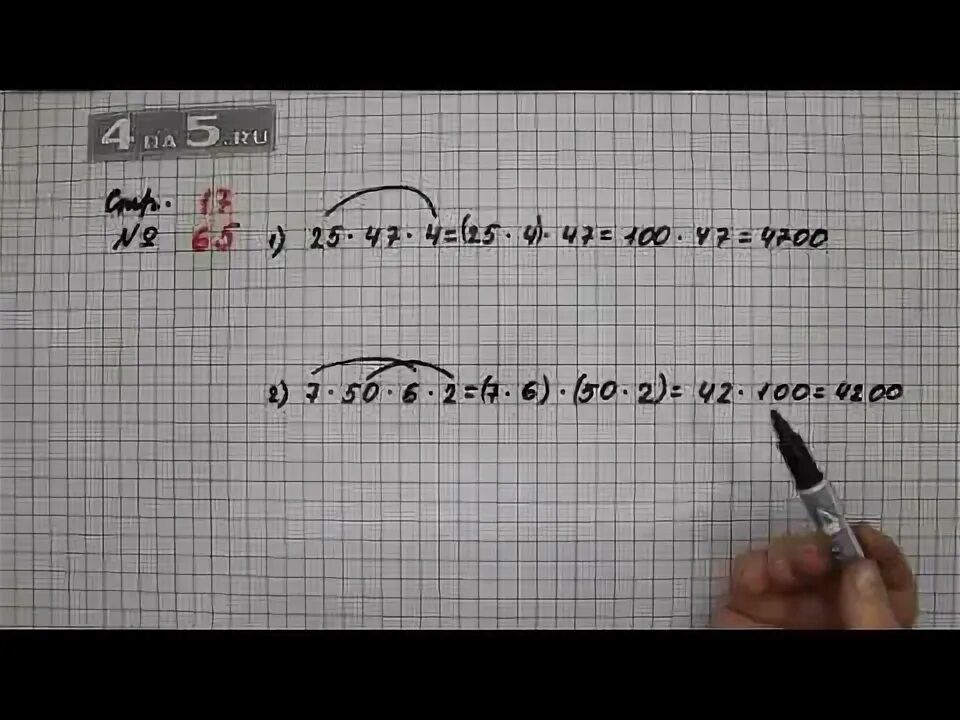 4 НА 5.RU
Стр. 17
№ 65 1) 25 · 47 · 4 = (25 · 4) · 47 = 100 · 47 = 4700
2) 7 · 50 · 6 · 2 = (7 · 6) · (50 · 2) = 42 · 100 = 4200